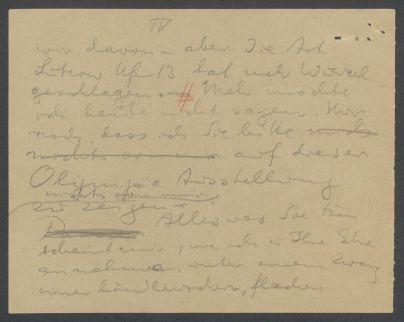 IV
wir davon – aber Die Art
hat mehr Wirbel
geschlagen. Mehr möchte
ich heute nicht sagen. Nur
noch, dass ich Sie bitte
nichts auf dieser
Olympia Ausstellung
nichts von mir
zu zeigen. Alles was Sie tun
scheint mir, wie ich in Ihre
annehme, unter einem Zwang
einer händlerischen, flachen